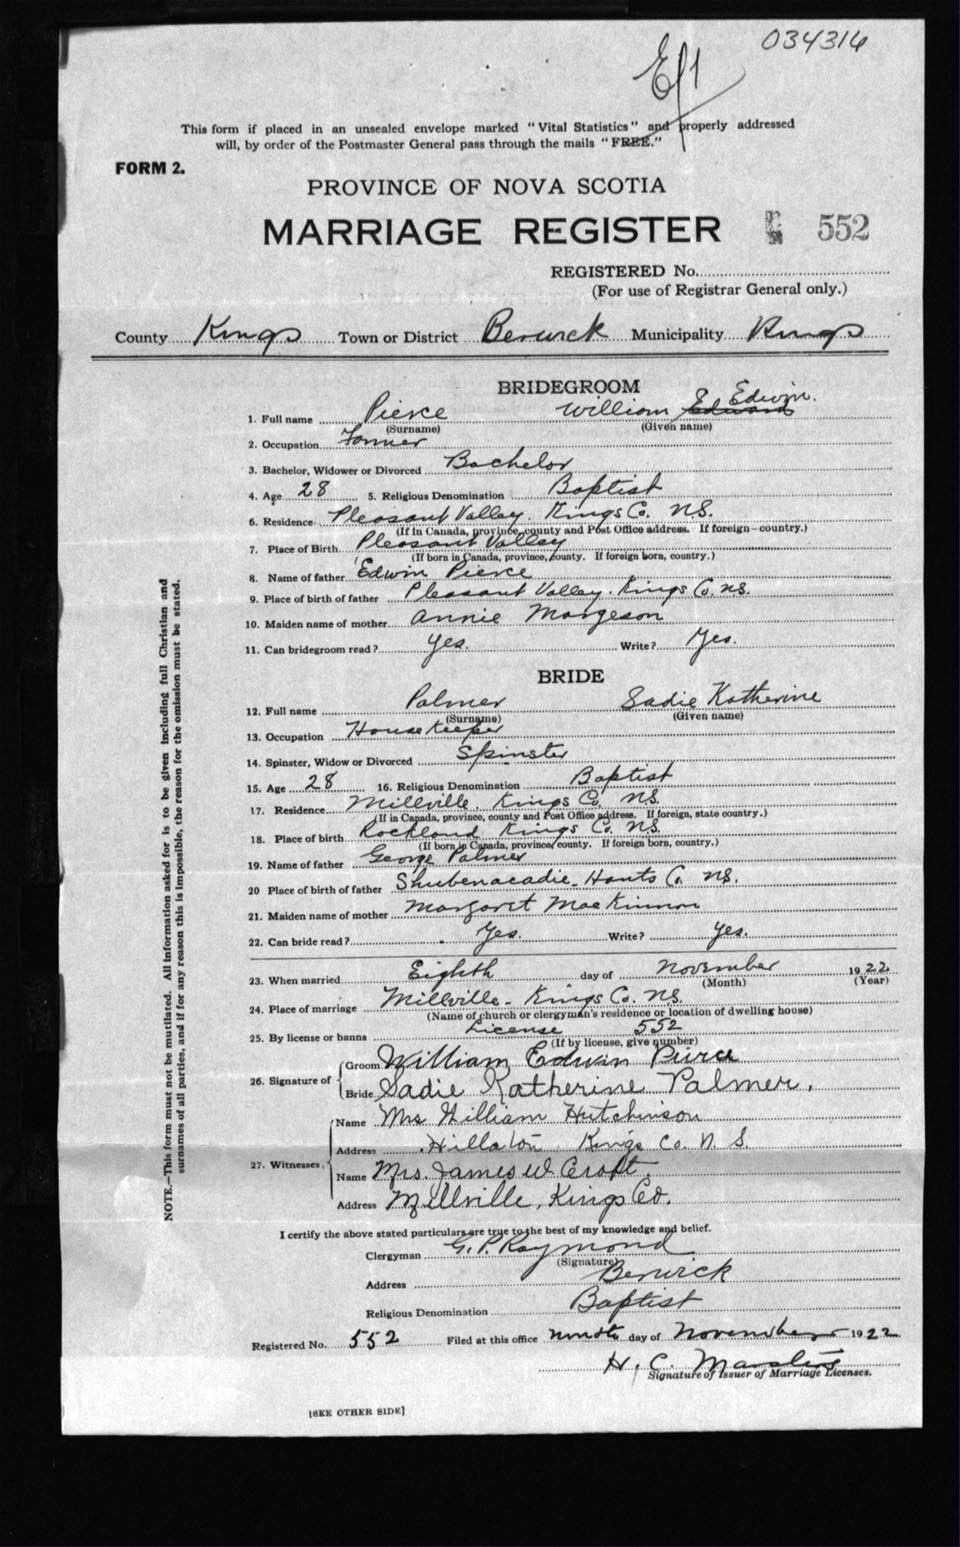 034316
This form if placed in an unsealed envelope marked "Vital Statistics" and properly addressed
will, by order of the Postmaster General pass through the mails "FREE."
FORM 2.
PROVINCE OF NOVA SCOTIA
MARRIAGE REGISTER 552
REGISTERED No.
(For use of Registrar General only.)
County Kings Town or District Berwick Municipality Kings
BRIDEGROOM
1. Full name Pierce William E. Edward Edwin.
(Surname) (Given name)
2. Occupation Farmer
3. Bachelor, Widower or Divorced Bachelor
4. Age 28 5. Religious Denomination Baptist
6. Residence Pleasant Valley, Kings Co. N.S.
(If in Canada, province, county and Post Office address. If foreign—country.)
7. Place of Birth Pleasant Valley
(If born in Canada, province, county. If foreign born, country.)
8. Name of father Edwin Pierce
9. Place of birth of father Pleasant Valley. Kings Co. N.S.
10. Maiden name of mother Annie Margeson
11. Can bridegroom read? Yes. Write? Yes.
BRIDE
12. Full name Palmer Sadie Katherine
(Surname) (Given name)
13. Occupation Housekeeper
14. Spinster, Widow or Divorced Spinster
15. Age 28 16. Religious Denomination Baptist
17. Residence Millville, Kings Co. N.S.
(If in Canada, province, county and Post Office address. If foreign, state country.)
18. Place of birth Rockland Kings Co. N.S.
(If born in Canada, province, county. If foreign born, country.)
19. Name of father George Palmer
20 Place of birth of father Shubenacadie, Hants Co. N.S.
21. Maiden name of mother Margaret MacKinnon
22. Can bride read? Yes. Write? Yes.
23. When married Eighth day of November 1922
(Month) (Year)
24. Place of marriage Millville - Kings Co. N.S.
(Name of church or clergyman's residence or location of dwelling house)
25. By license or banns License 552
(If by license, give number)
26. Signature of Groom William Edwin Pierce
Bride Sadie Katherine Palmer.
27. Witnesses Name Mrs William Hutchinson
Address Hillaton Kings Co. N.S.
Name Mrs. James W Croft.
Address Millville, Kings Co.
I certify the above stated particulars are true to the best of my knowledge and belief.
Clergyman G. P. Raymond
(Signature)
Address Berwick
Religious Denomination Baptist
Registered No. 552 Filed at this office ninth day of November 1922
H. C.
Signature of Issuer of Marriage Licenses.
[SEE OTHER SIDE]
NOTE.—This form must not be mutilated. All information asked for is to be given including full Christian and
surnames of all parties, and if for any reason this is impossible, the reason for the omission must be stated.